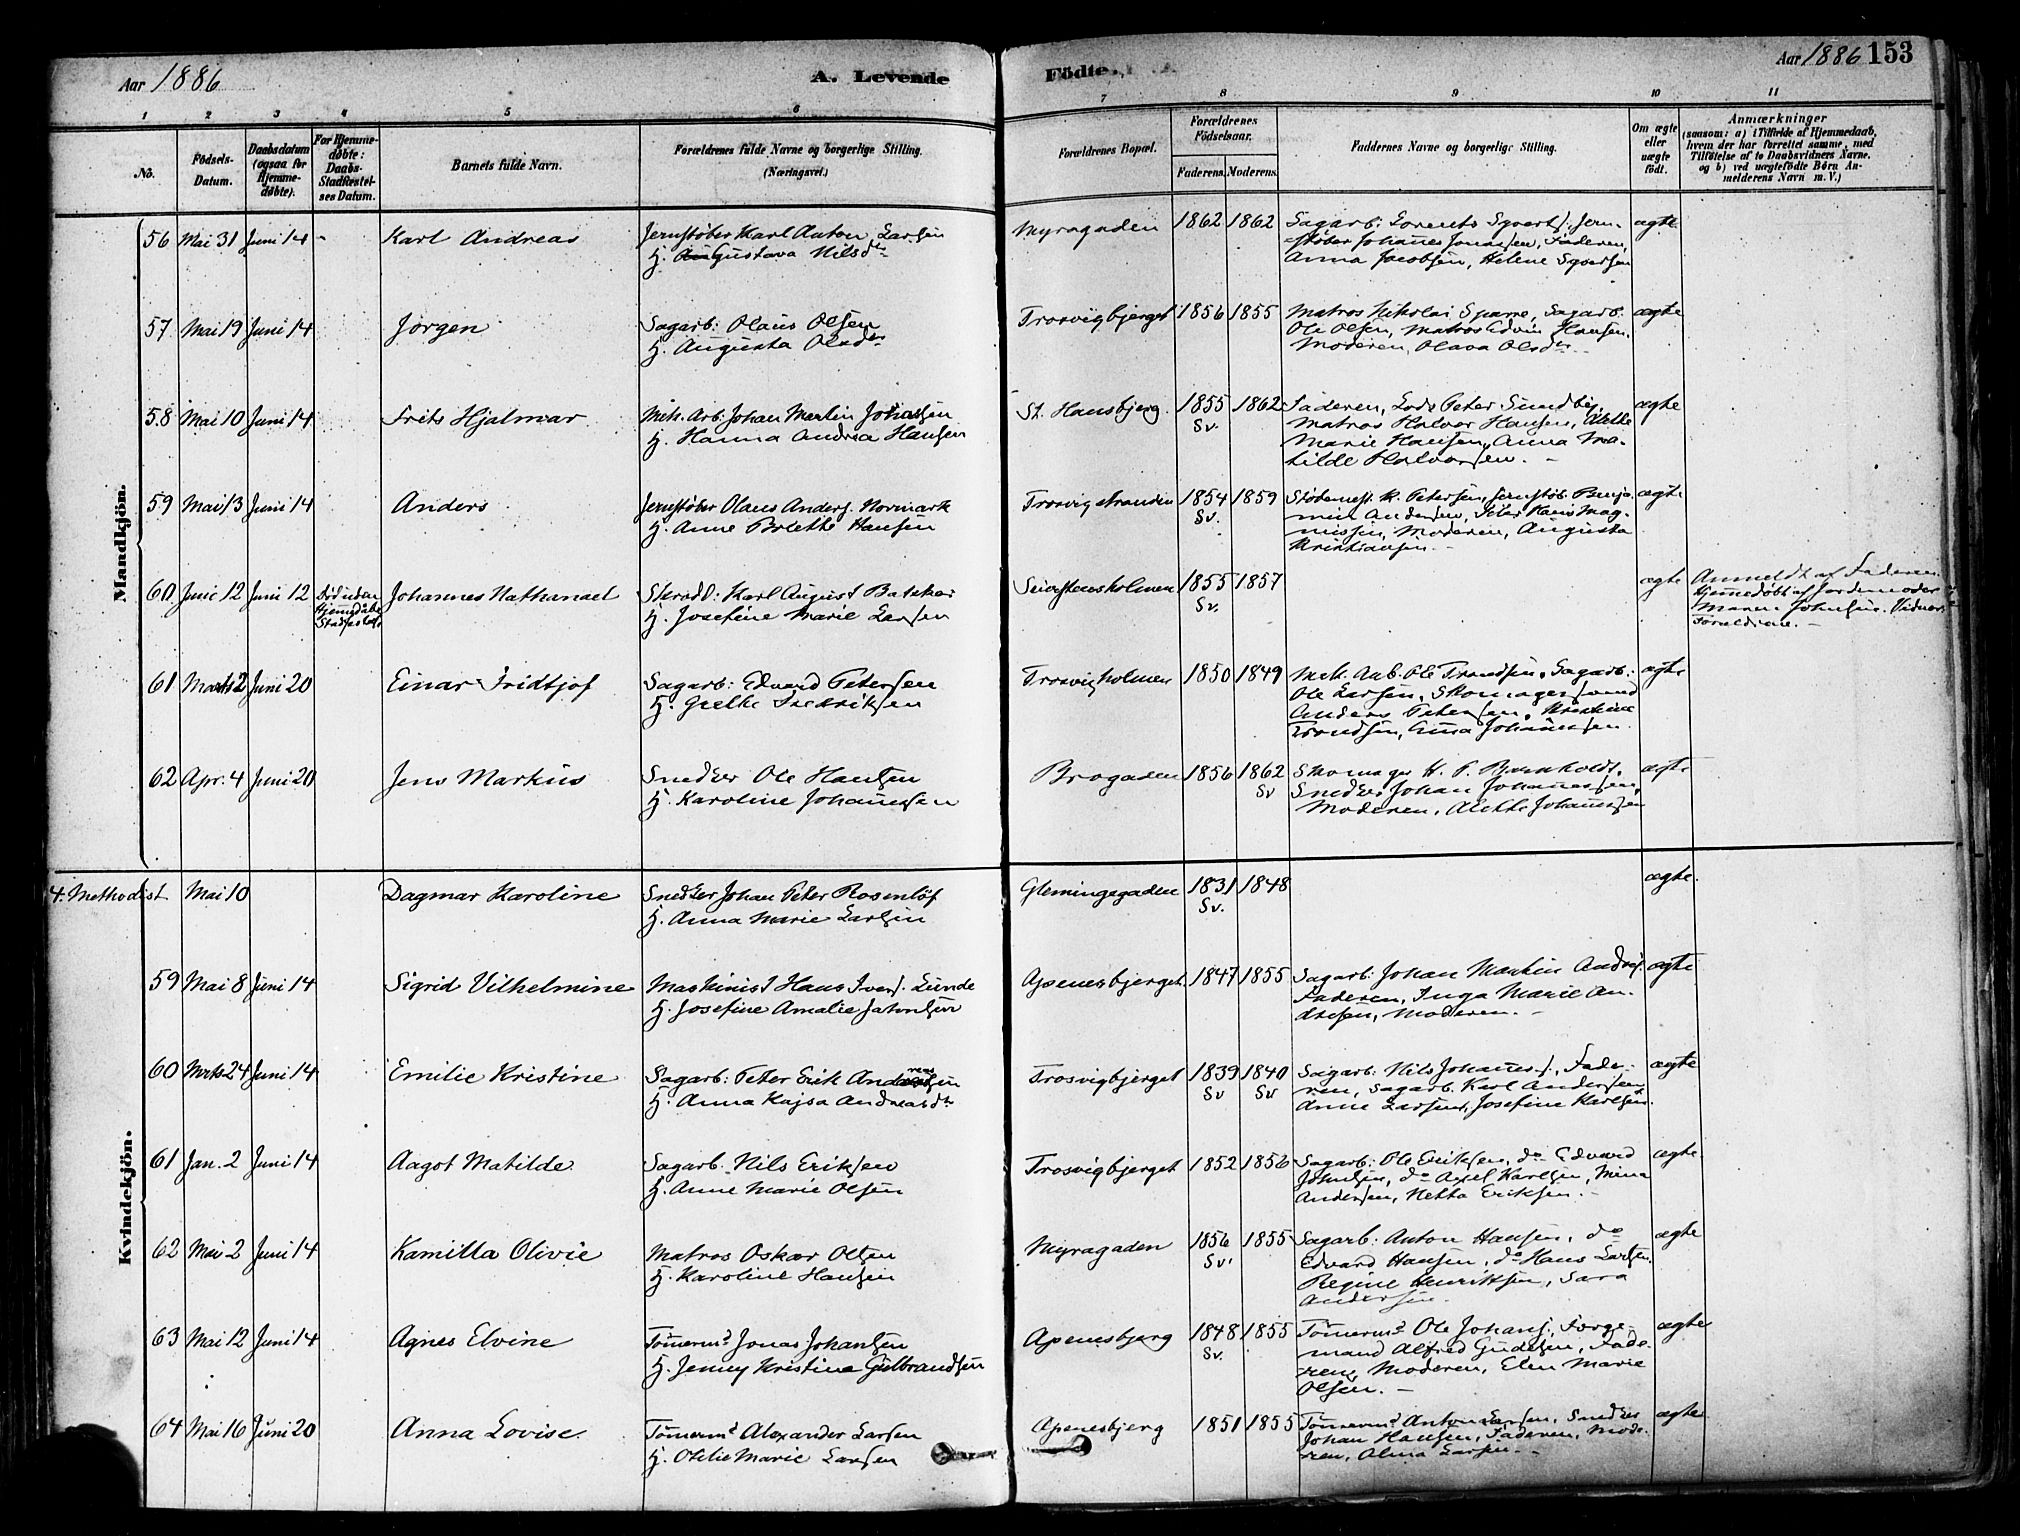 Aar 1886
A. Levende
Födte.
Aar 1886 153
1 2 3 4 5 6 7 8 9 10 11
No.
Födsels-Datum.
Daabsdatum (ogsaa for Hjemme-døbte).
For Hjemme-døbte: Daabs-Stadfæstel-ses Datum.
Barnets fulde Navn.
Forældrenes fulde Navne og borgerlige Stilling. (Næringsvei.)
Forældrenes Bopæl.
Forældrenes Födselsaar.
Faderens. Moderens.
Faddernes Navne og borgerlige Stilling.
Om ægte eller uægte født.
Anmærkninger
(saasom: a) i Tilfælde af Hjemmedaab,
hvem der har forrettet samme, med
Tilføielse af to Daabsvidners Navne.
og b) ved uægtefødte Börn An-
melderens Navn m. V.)
Mandkjön.
56 Mai 31 Juni 14 - Karl Andreas
Jernstøber Karl Anton Larsen
H. Gustava Nilsdtr
Myragaden 1862 1862
Sagarb: Lorents Syverts., Jern-
støber Johannes Jonassen, Faderen,
Anna Jacobsen, Helene Syversen
ægte
57 Mai 19 Juni 14 Jørgen
Sagarb: Olaus Olsen
H. Augusta Olsdtr
Trosvigbjerget 1856 1855
Matros Nikolai Sparre, Sagarb.
Ole Olsen, Matros Edvin Hansen,
Moderen, Olava Olsdtr.
ægte
58 Mai 10 Juni 14 Frits Hjalmar
Mek. Arb. Johan Martin Johansen
H. Hanna Andrea Hansen
St. Hansbjerg. 1855 Sv. 1862
Faderen, Lods Peter Sundby,
Matros Halvor Hansen, Alette
Marie Hansen, Anna Ma-
tilde Halvorsen. -
ægte
59 Mai 13 Juni 14 Anders
Jernstøber Olaus Anders. Normark
H. Anne Bolette Hansen
Trosvigstranden 1854 Sv. 1859
Støbemest. K. Petersen, Jernstøb. Benja-
min Andersen, Peter Hans Mag-
nussen, Moderen, Augusta
Kristiansen. -
ægte
60 Juni 12 Juni 12
Død uden
Hjemdåbs
Stadfæstelse
Johannes Nathanael
Skrædd: Karl August Batcker
H. Josefine Marie Larsen
Seiersteensholmen 1855 Sv. 1857
ægte
Anmeldt af Faderen.
Hjemmedøbt af Jordemoder
Maren Johnsen. Vidner:
Forældrene. -
61 Marts 2 Juni 20 Einar Fridtjof
Sagarb: Edvard Petersen
H. Grethe Fredriksen
Trosvigholmen 1850 1849
Mek. Arb. Ole Trondsen, Sagarb:
Ole Larsen, Skomagersvend
Anders Petersen, Kristine
Trondsen, Anna Johannessen.
ægte
62 Apr. 4 Juni 20 Jens Markus
Snedker Ole Hansen
H. Karoline Johannessen
Brogaden 1856 1862 Sv
Skomager H. P. Barnholdt,
Snedker Johan Johannessen,
Moderen, Alette Johannessen
ægte
Kvindekjön.
4. Methodist Mai 10 Dagmar Karoline
Snedker Johan Peter Rosenlöf
H. Anna Marie Larsen
Glemingegaden 1831 Sv. 1848
ægte.
59 Mai 8 Juni 14 Sigrid Vilhelmine
Maskinist Hans Ivers. Lunde
H. Josefine Amalie Jahnsen
Apenesbjerget 1847 1855
Sagarb: Johan Martin Andres.
Faderen, Inga Marie An-
dresen, Moderen. -
ægte
60 Mrts 24 Juni 14 Emilie Kristine
Sagarb: Peter Erik Andreassen
H. Anna Kajsa Andreasdtr
Trosvigbjerget 1839 Sv 1840 Sv
Sagarb: Nils Johannes., Fade-
ren, Sagarb. Karl Andersen
Anne Larsen, Josefine Karlsen.
ægte
61 Jan. 2 Juni 14 Aagot Matilde
Sagarb. Nils Eriksen
H. Anne Marie Olsen
Trosvigbjerget 1852 1856
Sagarb: Ole Eriksen, do Edvard
Johnsen, do Axel Karlsen, Mina
Andersen, Netta Eriksen. -
ægte
62 Mai 2 Juni 14 Kamilla Olivie
Matros Oskar Olsen
H. Karoline Hansen
Myragaden 1856 Sv. 1855
Sagarb: Anton Hansen, do
Edvard Hansen, do Hans Larsen.
Regine Henriksen, Sara
Andersen.
ægte
63 Mai 12 Juni 14 Agnes Elvine
Tømmermd Jonas Johansen
H. Jenny Kristine Gulbrandsen
Apenesbjerg 1848 Sv. 1855
Tømmermd Ole Johans., Forge-
mand Alfred Gudesen, Fade-
ren, Moderen, Elen Marie
Olsen. -
ægte
64 Mai 16 Juni 20 Anna Lovise
Tømmermd Alexander Larsen
H. Otilie Marie Larsen
Apenesbjerg 1851 1855
Tømmermd Anton Larsen, Snedker
Johan Hansen, Faderen, Mode-
ren, Alma Larsen. -
ægte